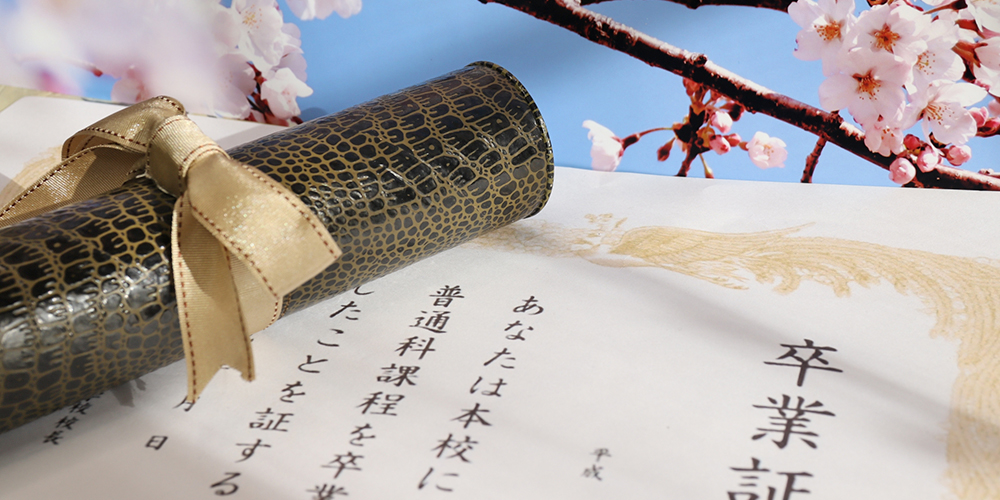 卒業証
平成
あなたは本校に
普通科課程を卒業
したことを証する
月
日
校長